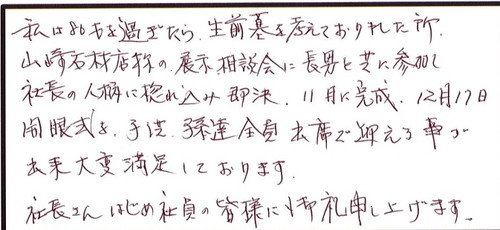 私は80才を過ぎたら、生前墓を考えておりました所、
山崎石材店様の展示相談会に長男と共に参加し
社長の人柄に惚れ込み即決、11月に完成、12月17日
開眼式を、子供、孫達全員出席で迎える事が
出来大変満足しております。
社長さんはじめ社員の皆様にも御礼申し上げます。